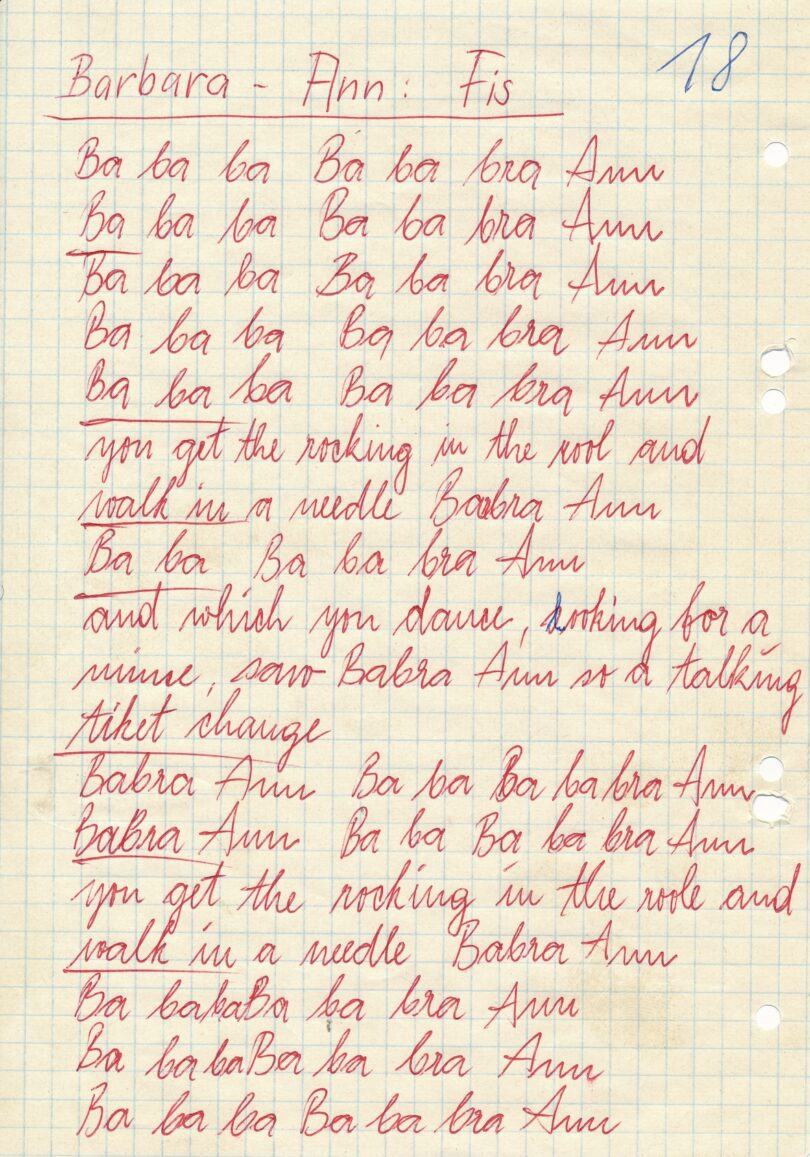 18
Barbara - Ann: Fis
Ba ba ba Ba ba bra Ann
Ba ba ba Ba ba bra Ann
Ba ba ba Ba ba bra Ann
Ba ba ba Ba ba bra Ann
Ba ba ba Ba ba bra Ann
you get the rocking in the rool and
walk in a needle Babra Ann
Ba ba Ba ba bra Ann
and which you dance, looking for a
mince, saw Babra Ann so a talking
tiket change
Babra Ann Ba ba Ba ba bra Ann
Babra Ann Ba ba Ba ba bra Ann
you get the rocking in the roole and
walk in a needle Babra Ann
Ba baba Ba ba bra Ann
Ba ba ba Ba ba bra Ann
Ba ba ba Ba ba bra Ann